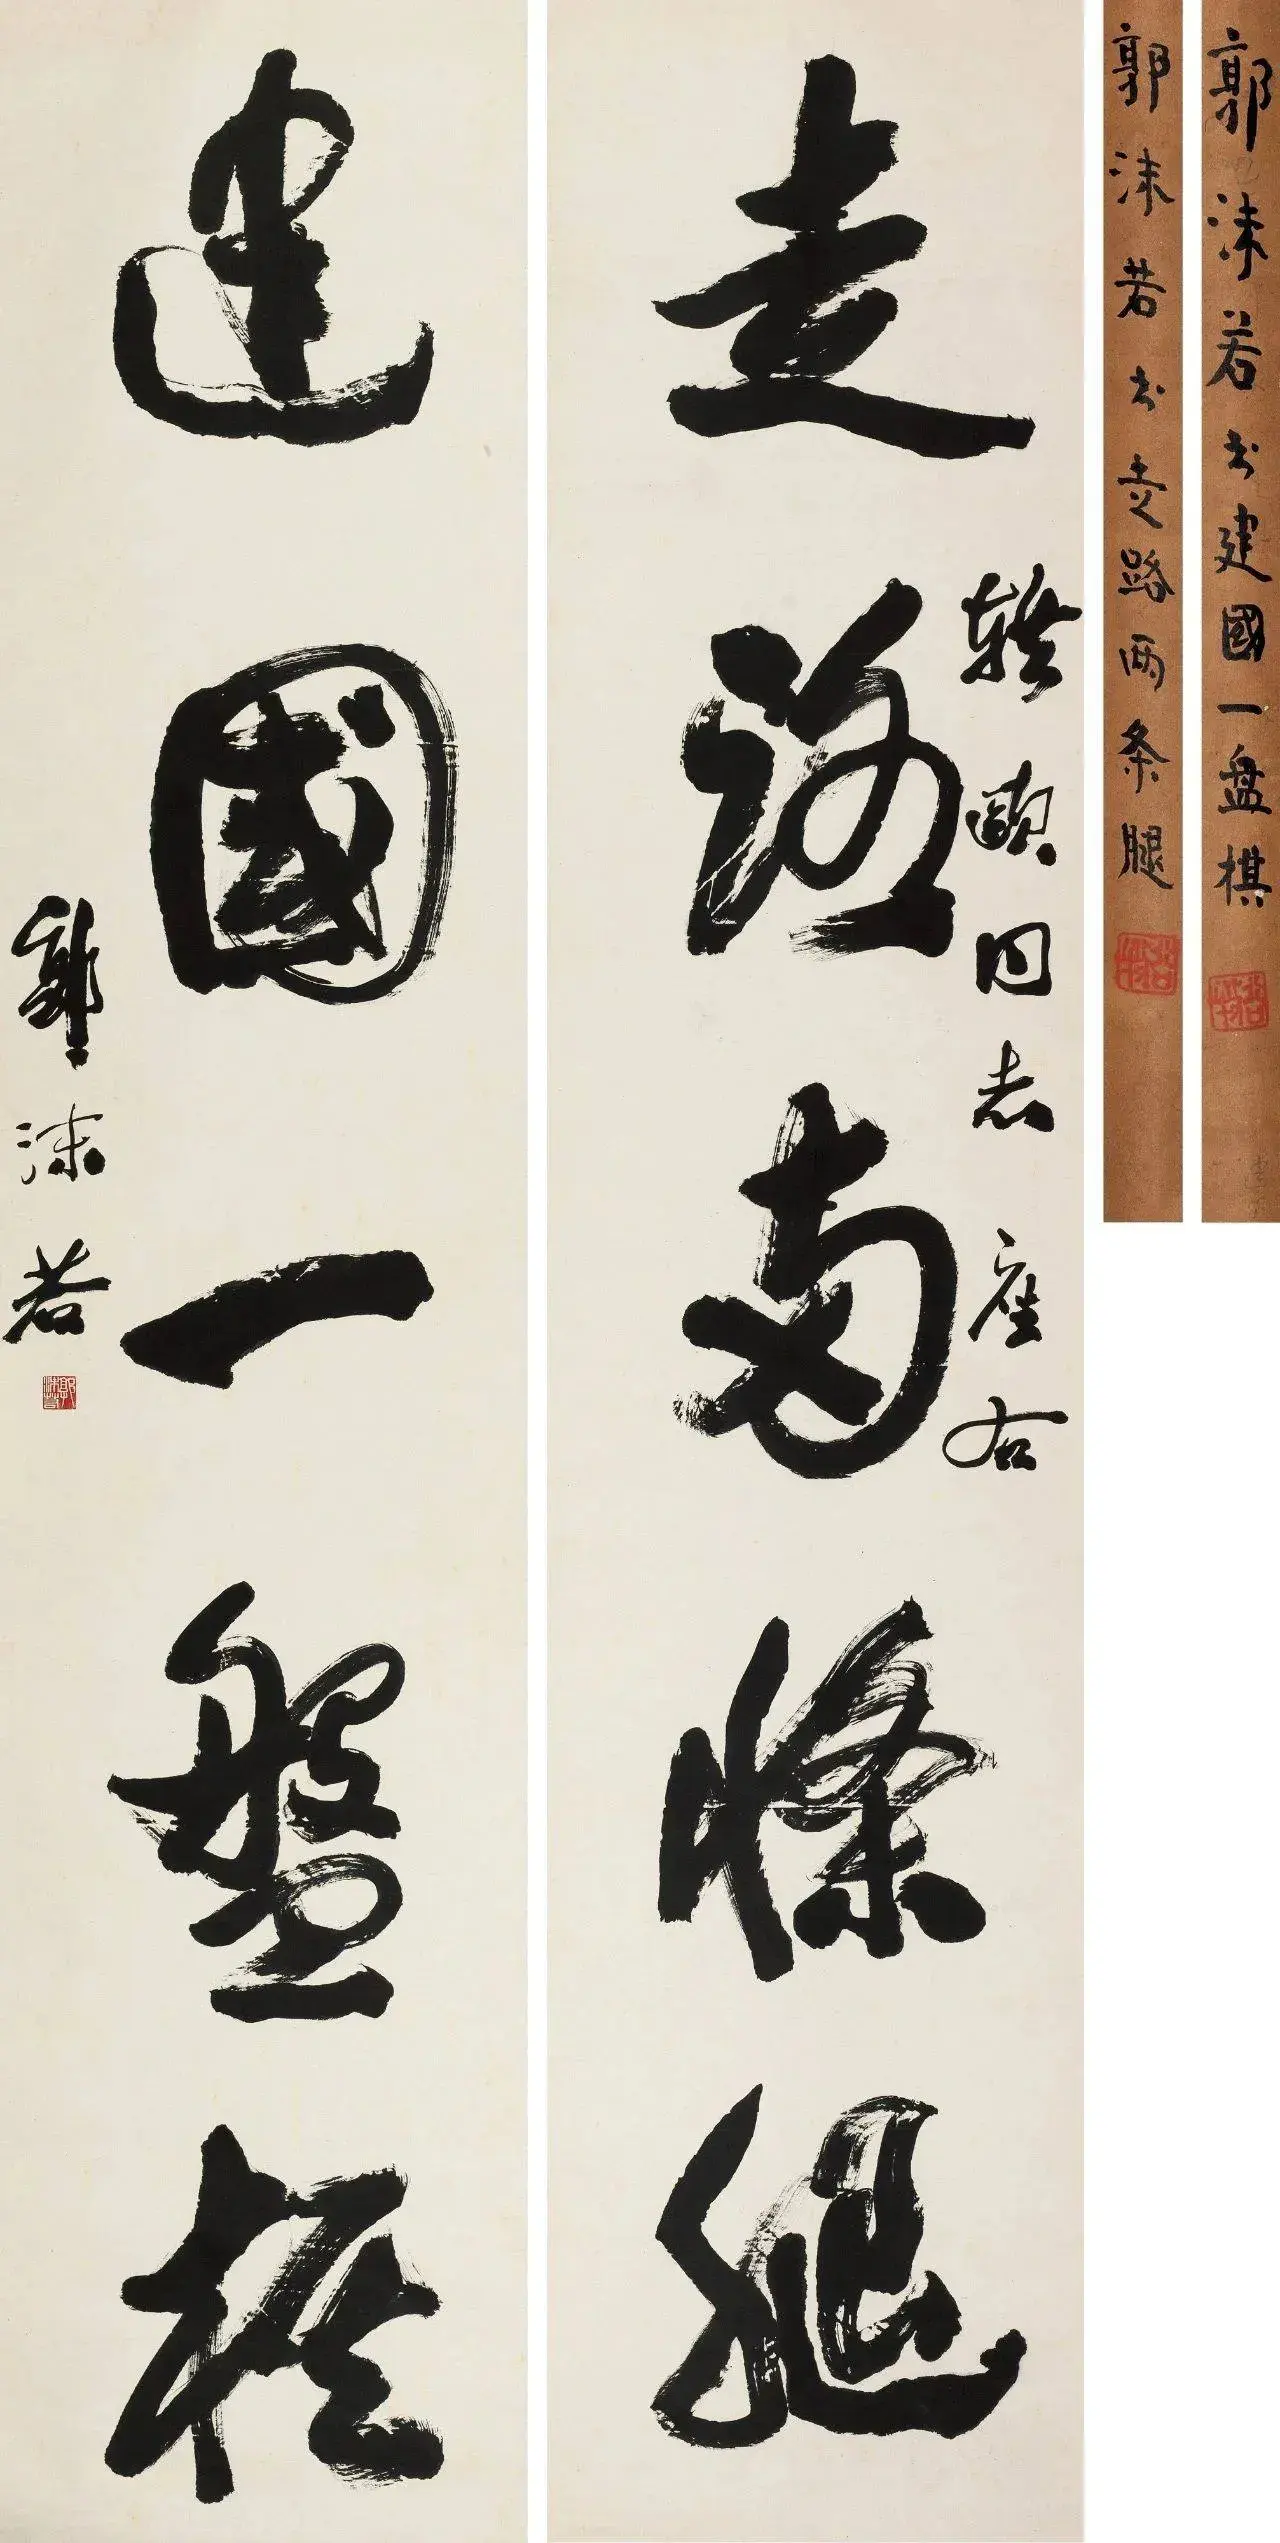 郭沫若书建國一盘棋
郭沫若书走路两条腿
同志座右
走路两條腿
建國一盤棋
郭沫若
郭沫若